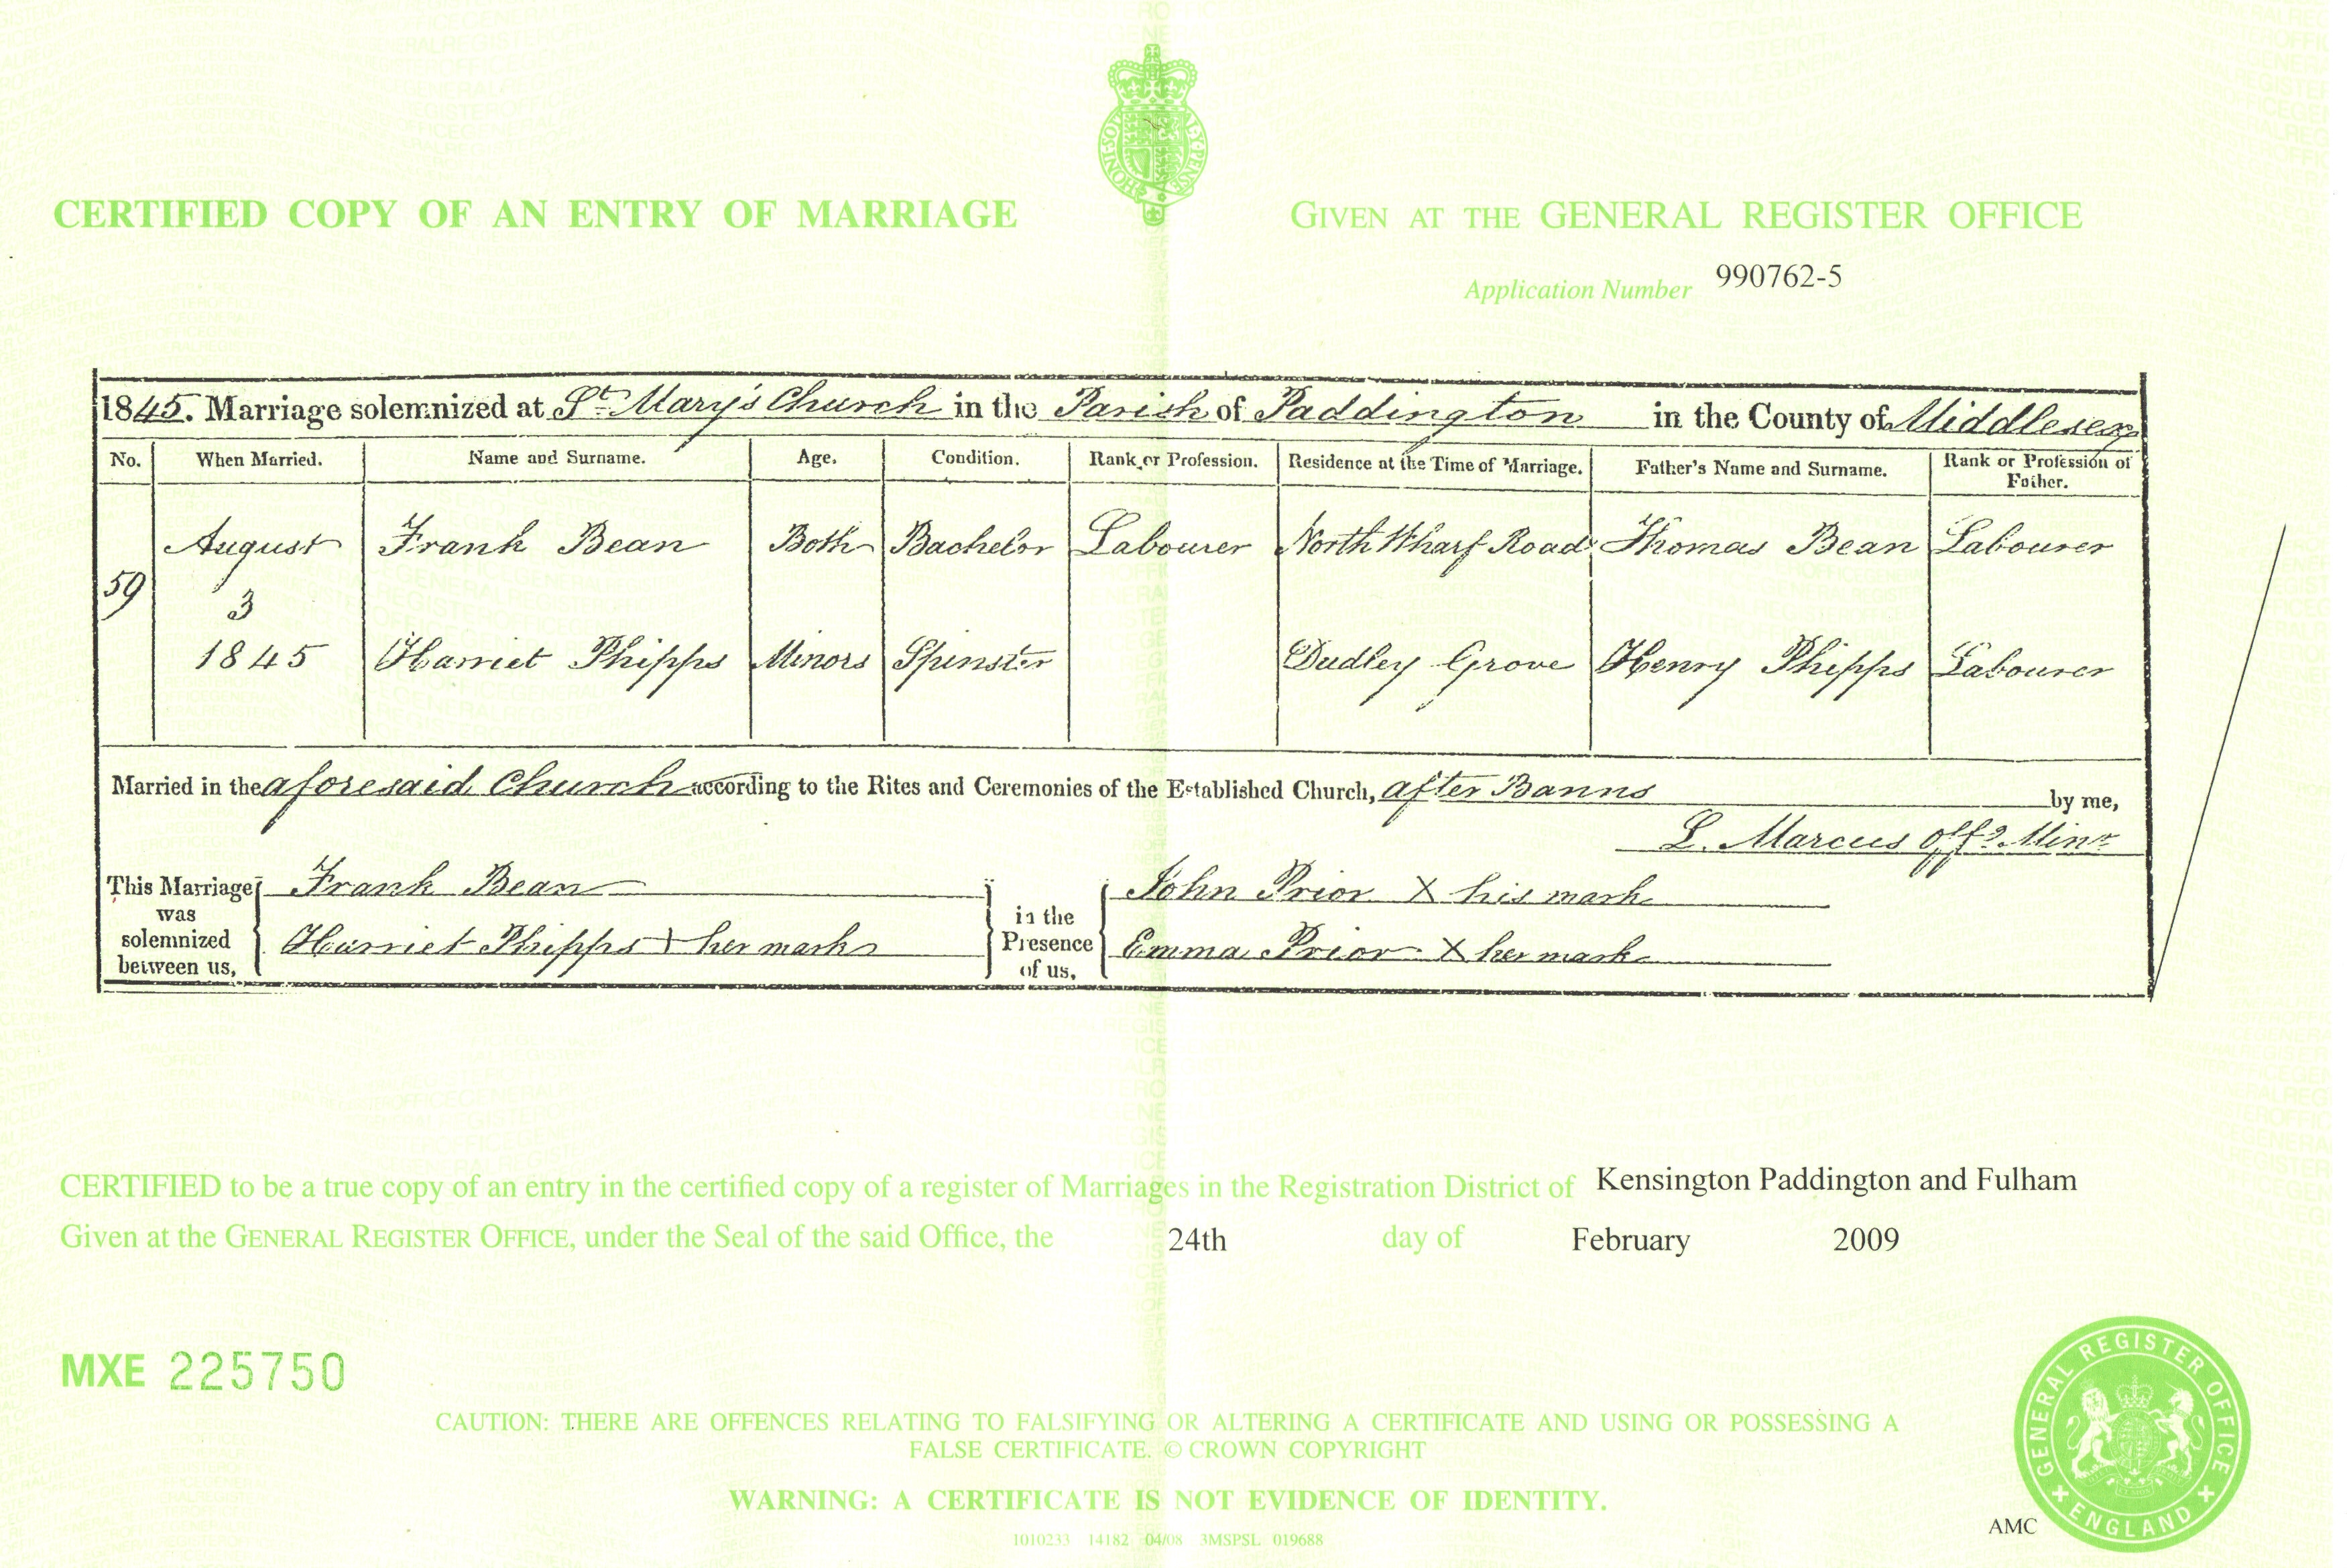 HONI SOIT QUI MAL Y PENSE
CERTIFIED COPY OF AN ENTRY OF MARRIAGE
GIVEN AT THE GENERAL REGISTER OFFICE
Application Number 990762-5
1845. Marriage solemnized at St. Mary's Church in the Parish of Paddington in the County of Middlesex
No. When Married. Name and Surname. Age. Condition. Rank or Profession. Residence at the Time of Marriage. Father's Name and Surname. Rank or Profession of Father.
August Frank Bean Both Bachelor Labourer North Wharf Road Thomas Bean Labourer
59 3
1845 Harriet Phipps Minors Spinster Dudley Grove Henry Phipps Labourer
Married in the aforesaid Church according to the Rites and Ceremonies of the Established Church, after Banns by me,
L. Marcus Offg Minr
This Marriage was solemnized between us, Frank Bean in the Presence of us, John Prior X his mark
Harriet Phipps + her mark Emma Prior X her mark
CERTIFIED to be a true copy of an entry in the certified copy of a register of Marriages in the Registration District of Kensington Paddington and Fulham
Given at the GENERAL REGISTER OFFICE, under the Seal of the said Office, the 24th day of February 2009
MXE 225750
CAUTION: THERE ARE OFFENCES RELATING TO FALSIFYING OR ALTERING A CERTIFICATE AND USING OR POSSESSING A
FALSE CERTIFICATE. © CROWN COPYRIGHT
WARNING: A CERTIFICATE IS NOT EVIDENCE OF IDENTITY.
1010233 14182 04/08 3MSPSL 019688
AMC
GENERAL REGISTER OFFICE
ENGLAND